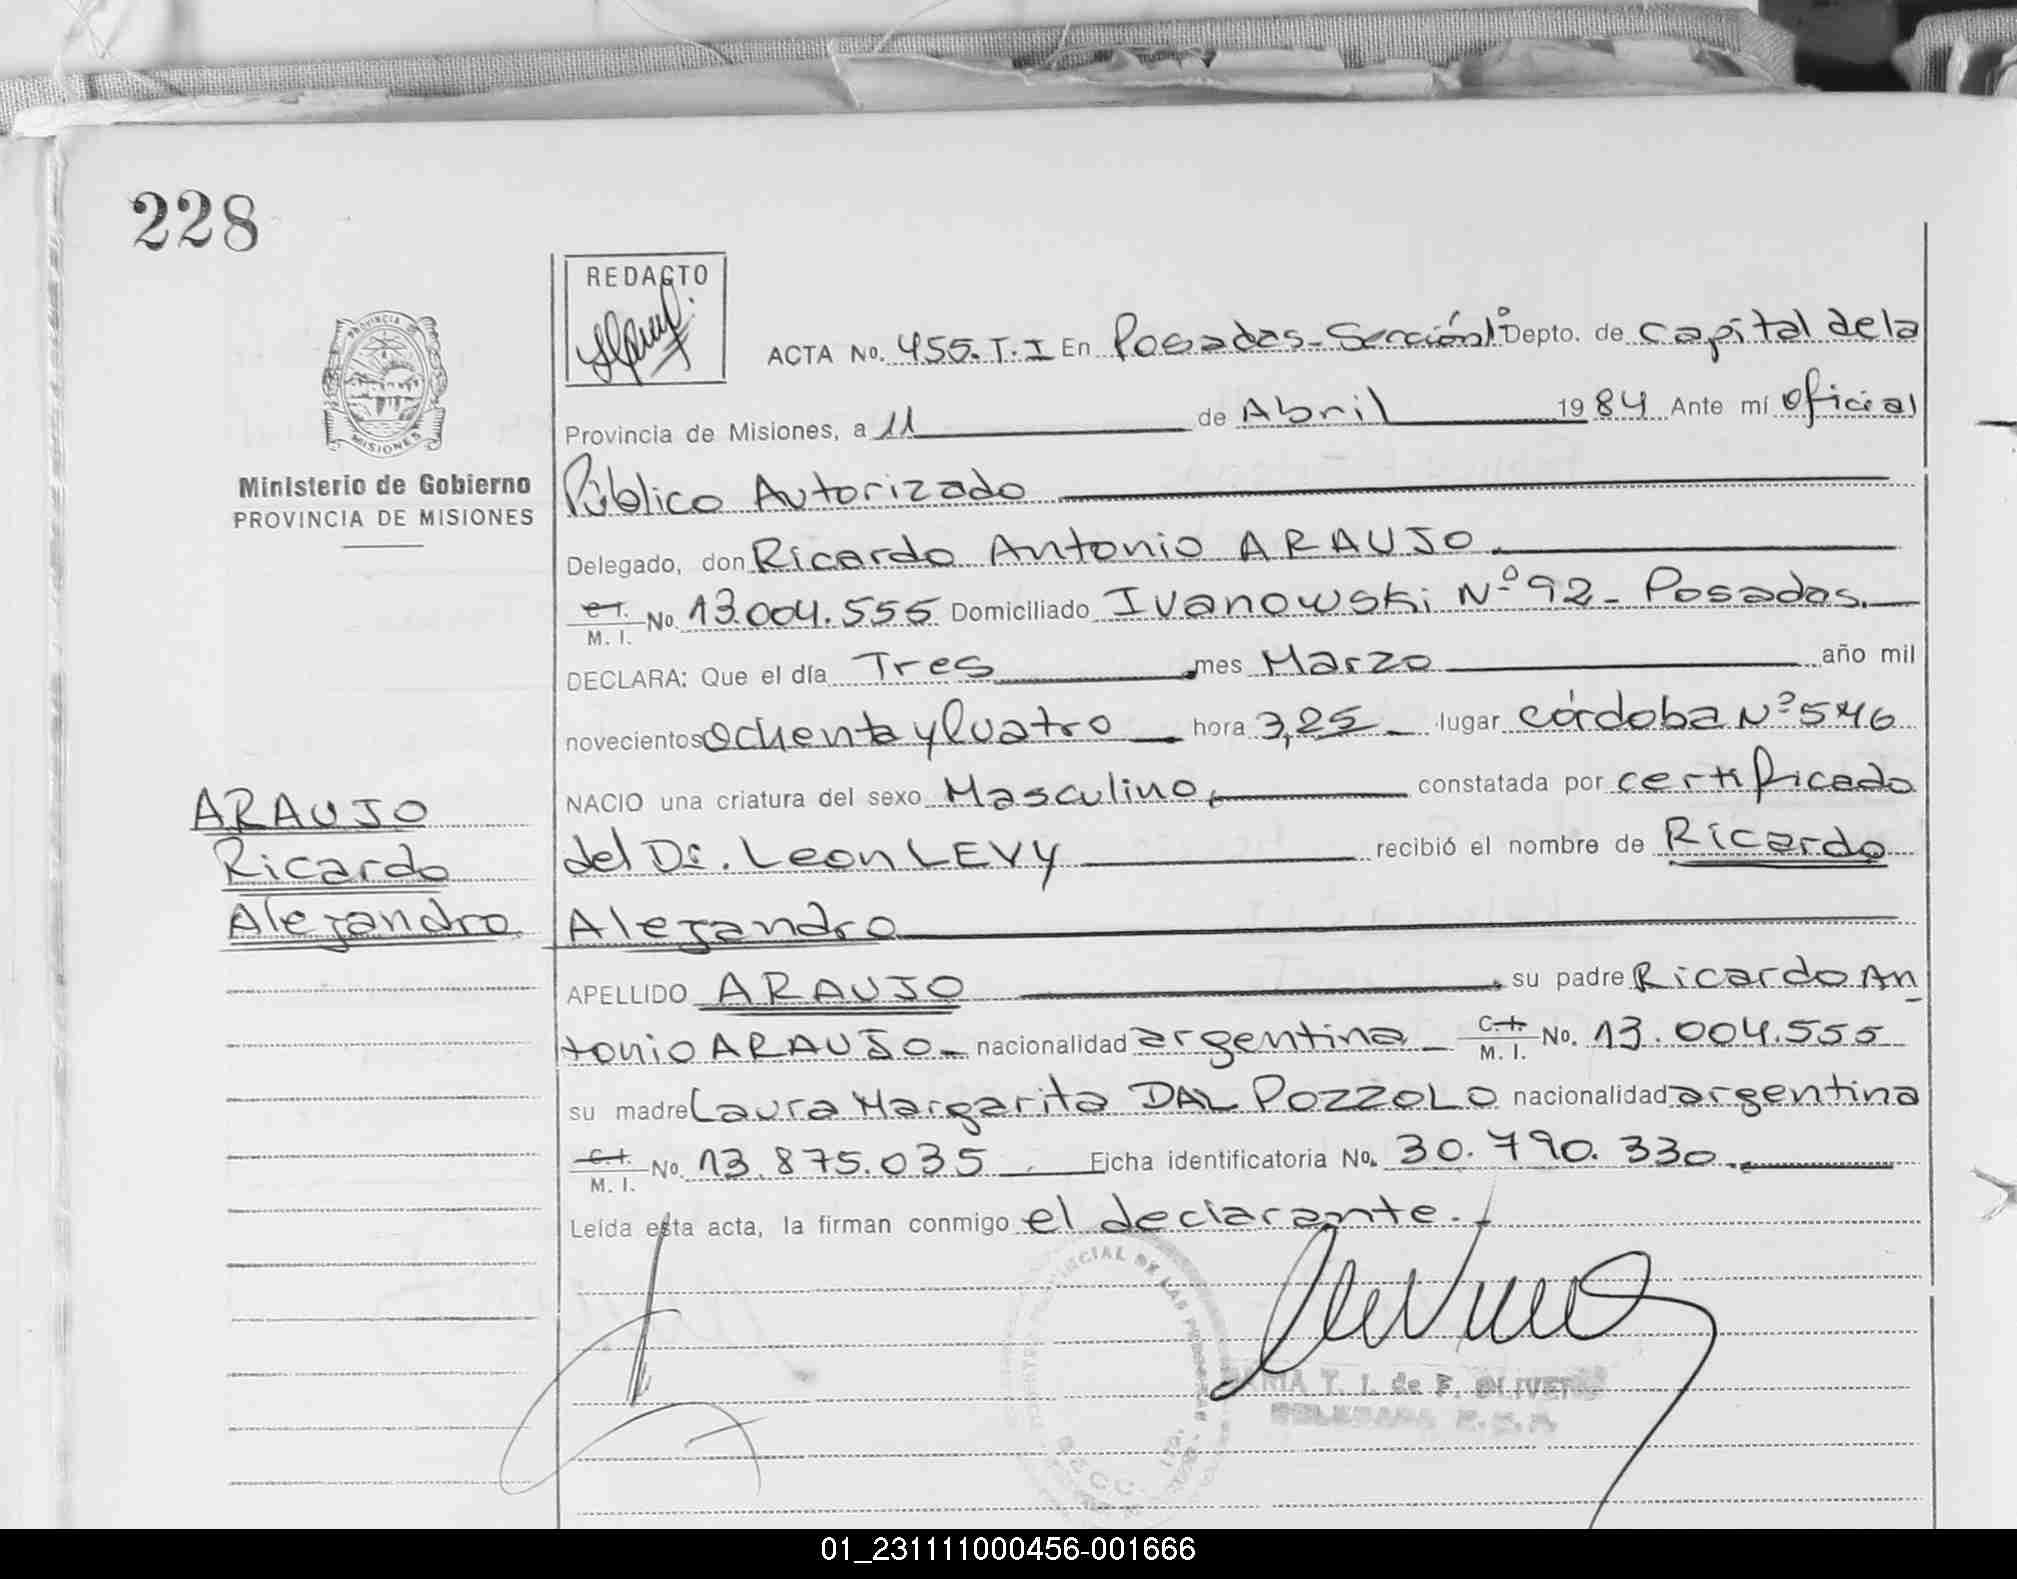 228
REDACTO
PROVINCIA DE
MISIONES
Ministerio de Gobierno
PROVINCIA DE MISIONES
ACTA No. 455.T.I En Posadas-Sección 1° Depto. de Capital de la
Provincia de Misiones, a 11 de Abril 1984 Ante mí Oficial
Público Autorizado
Delegado, don Ricardo Antonio ARAUJO
C.I. M. I. No. 13.004.555 Domiciliado Ivanowski N° 92 - Posadas.
DECLARA: Que el día Tres mes Marzo año mil
novecientos Ochenta y Cuatro hora 3,25 lugar córdoba N° 546
NACIO una criatura del sexo Masculino, constatada por certificado
del Dr. Leon LEVY recibió el nombre de Ricardo
Alejandro
APELLIDO ARAUJO su padre Ricardo An
tonio ARAUJO nacionalidad argentina C.I. M. I. No. 13.004.555
su madre Laura Margarita DAL POZZOLO nacionalidad argentina
C.I. M. I. No. 13.875.035 Ficha identificatoria No. 30.790.330
Leída esta acta, la firman conmigo el declarante.
ARAUJO
Ricardo
Alejandro
MARIA T. I. de F. OLIVERA
DELEGADA
01_231111000456-001666